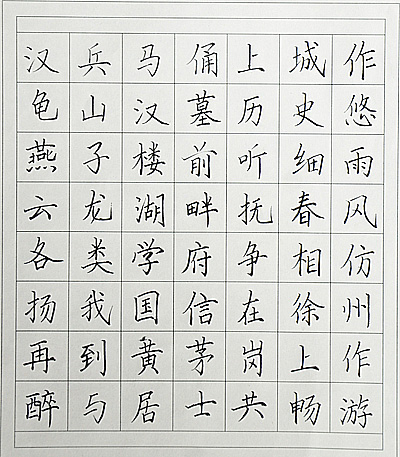 汉兵马俑上城作
龟山汉墓历史悠
燕子楼前听细雨
云龙湖畔抚春风
各类学府争相仿
扬我国信在徐州
再到黄茅岗上作
醉与居士共畅游